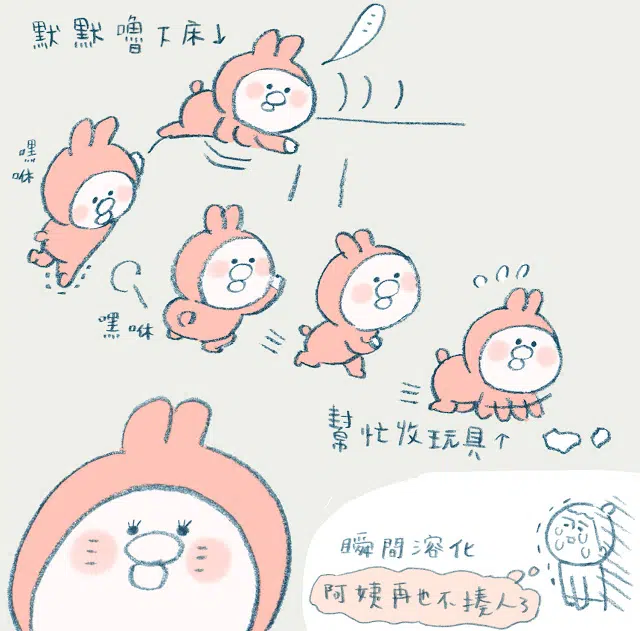 默默嚕下床↓
嘿
咻
嘿咻
幫忙收玩具↑
瞬間溶化
阿姨再也不揍人了